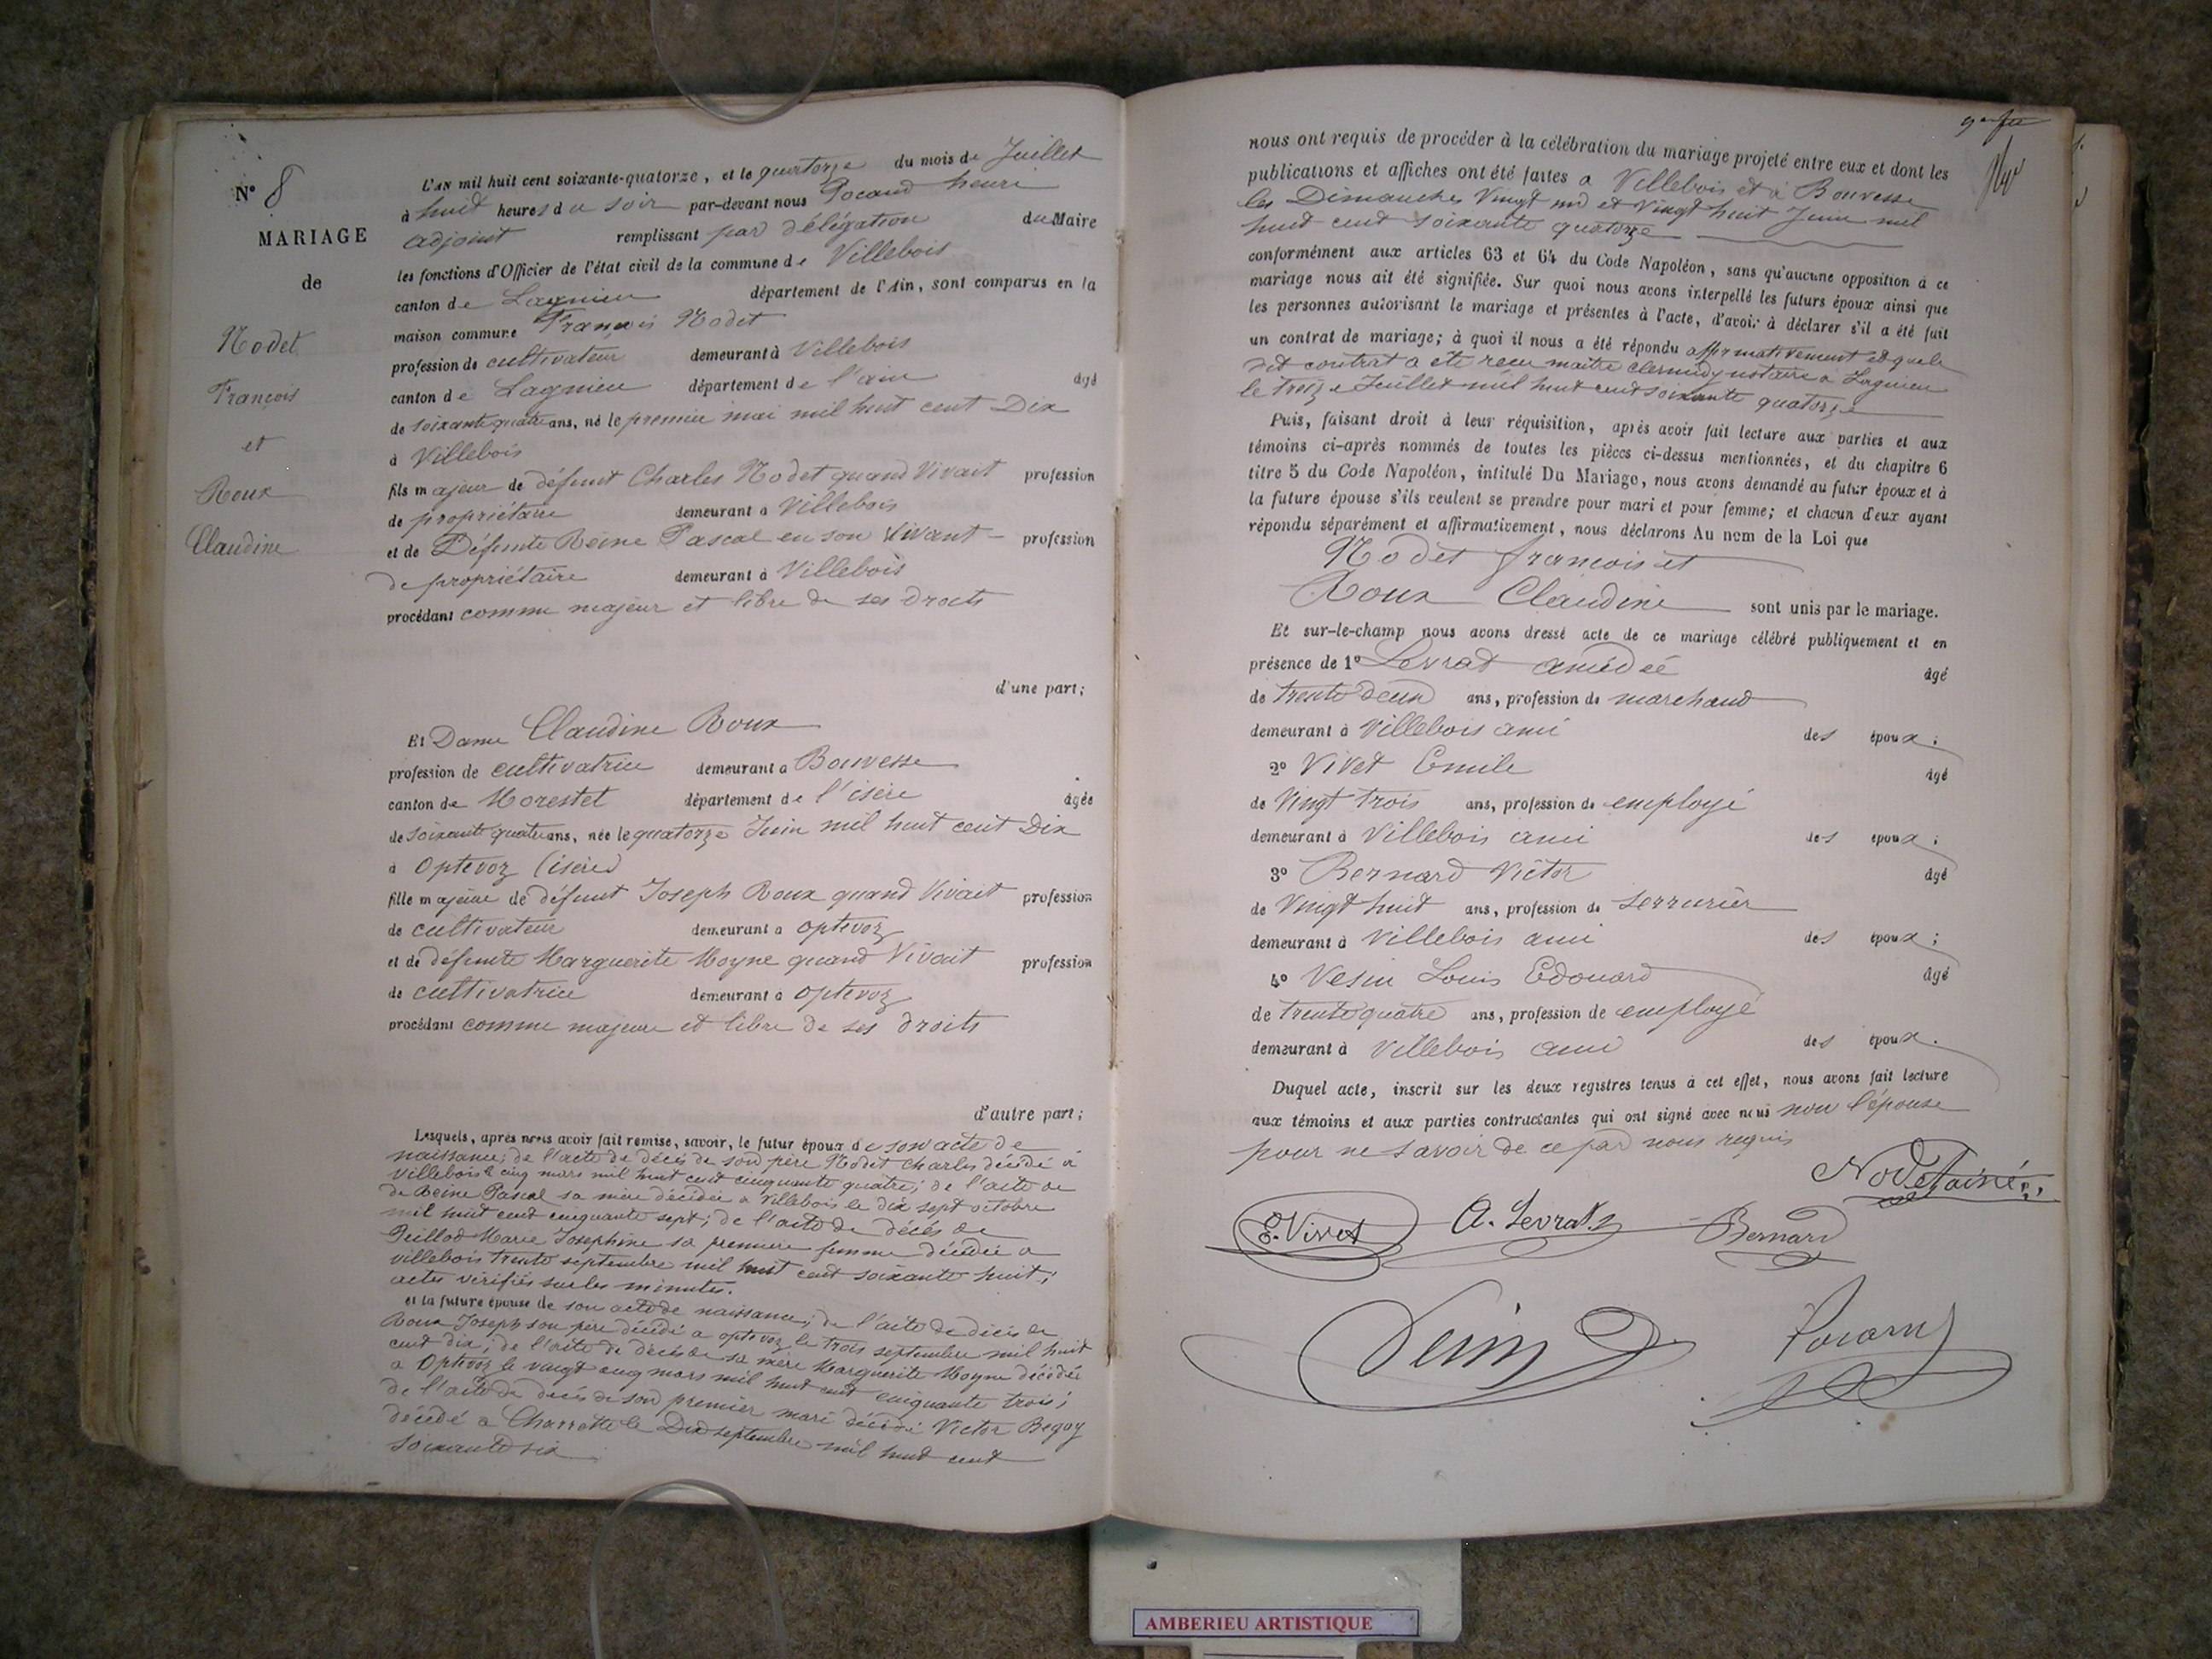 N° 8
MARIAGE
de
Nodet
François
et
Roux
Claudine
L'AN mil huit cent soixante-quatorze, et le quatorze du mois de Juillet
à huit heures du soir par-devant nous Pocard henri
adjoint remplissant par délégation du Maire
les fonctions d'Officier de l'état civil de la commune de Villebois
canton de Lagnieu département de l'Ain, sont comparus en la
maison commune François Nodet
profession de cultivateur demeurant à Villebois
canton de Lagnieu département de l'ain âgé
de soixante quatre ans, né le premier mai mil huit cent Dix
à Villebois
fils majeur de défunt Charles Nodet quand Vivait profession
de propriétaire demeurant à Villebois
et de Défunte Reine Pascal en son Vivant - profession
de propriétaire demeurant à Villebois
procédant comme majeur et libre de ses Droits
d'une part;
Et Dame Claudine Roux
profession de cultivatrice demeurant à Bouvesse
canton de Morestel département de l'isère âgée
de soixante quatre ans, née le quatorze Juin mil huit cent Dix
à Optevoz (isère)
fille majeure de défunt Joseph Roux quand Vivait profession
de cultivateur demeurant à optevoz
et de défunte Marguerite Moyne quand Vivait profession
de cultivatrice demeurant à optevoz
procédant comme majeure et libre de ses droits
d'autre part;
Lesquels, après nous avoir fait remise, savoir, le futur époux de son acte de
naissance; de l'acte de décès de son père Nodet Charles décédé à
Villebois le cinq mars mil huit cent cinquante quatre; de l'acte de
de Reine Pascal sa mère décédée à Villebois le dix sept octobre
mil huit cent cinquante sept; de l'acte de décès de
Peillod Marie Josephine sa première femme décédée a
villebois trente septembre mil huit cent soixante huit;
actes vérifiés sur les minutes.
et la future épouse de son acte de naissance; de l'acte de décès de
Roux Joseph son père décédé a optevoz le trois septembre mil huit
cent dix; de l'acte de décès de sa mère Marguerite Moyne décédée
a Optevoz le vingt cinq mars mil huit cent cinquante trois;
de l'acte de décès de son premier mari décédé Victor Beguy
décédé a Charrette le Dix septembre mil huit cent
soixante six
nous ont requis de procéder à la célébration du mariage projeté entre eux et dont les
publications et affiches ont été faites a Villebois et à Bouvesse
les Dimanches Vingt un et Vingt huit Juin mil
huit cent soixante quatorze
conformément aux articles 63 et 64 du Code Napoléon, sans qu'aucune opposition à ce
mariage nous ait été signifiée. Sur quoi nous avons interpellé les futurs époux ainsi que
les personnes autorisant le mariage et présentes à l'acte, d'avoir à déclarer s'il a été fait
un contrat de mariage; à quoi il nous a été répondu affirmativement et que le
dit contrat a été recu maitre clermidy notaire a Lagnieu
le treize Juillet mil huit cent soixante quatorze
Puis, faisant droit à leur réquisition, après avoir fait lecture aux parties et aux
témoins ci-après nommés de toutes les pièces ci-dessus mentionnées, et du chapitre 6
titre 5 du Code Napoléon, intitulé Du Mariage, nous avons demandé au futur époux et à
la future épouse s'ils veulent se prendre pour mari et pour femme; et chacun d'eux ayant
répondu séparément et affirmativement, nous déclarons Au nom de la Loi que
Nodet françois et
Roux Claudine sont unis par le mariage.
Et sur-le-champ nous avons dressé acte de ce mariage célébré publiquement et en
présence de 1° Levrat amédée âgé
de trente deux ans, profession de marchand
demeurant à Villebois ami des époux;
2° Vivet Emile âgé
de Vingt trois ans, profession de employé
demeurant à Villebois ami des époux;
3° Bernard Victor âgé
de Vingt huit ans, profession de serrurier
demeurant à Villebois ami des époux;
4° Vesin Louis Edouard âgé
de trente quatre ans, profession de employé
demeurant à Villebois ami des époux.
Duquel acte, inscrit sur les deux registres tenus à cet effet, nous avons fait lecture
aux témoins et aux parties contractantes qui ont signé avec nous non l'épouse
pour ne savoir de ce par nous requis
Nodet ainé
E. Vivet A. Levrat Bernard
Vesin Pocard
AMBERIEU ARTISTIQUE